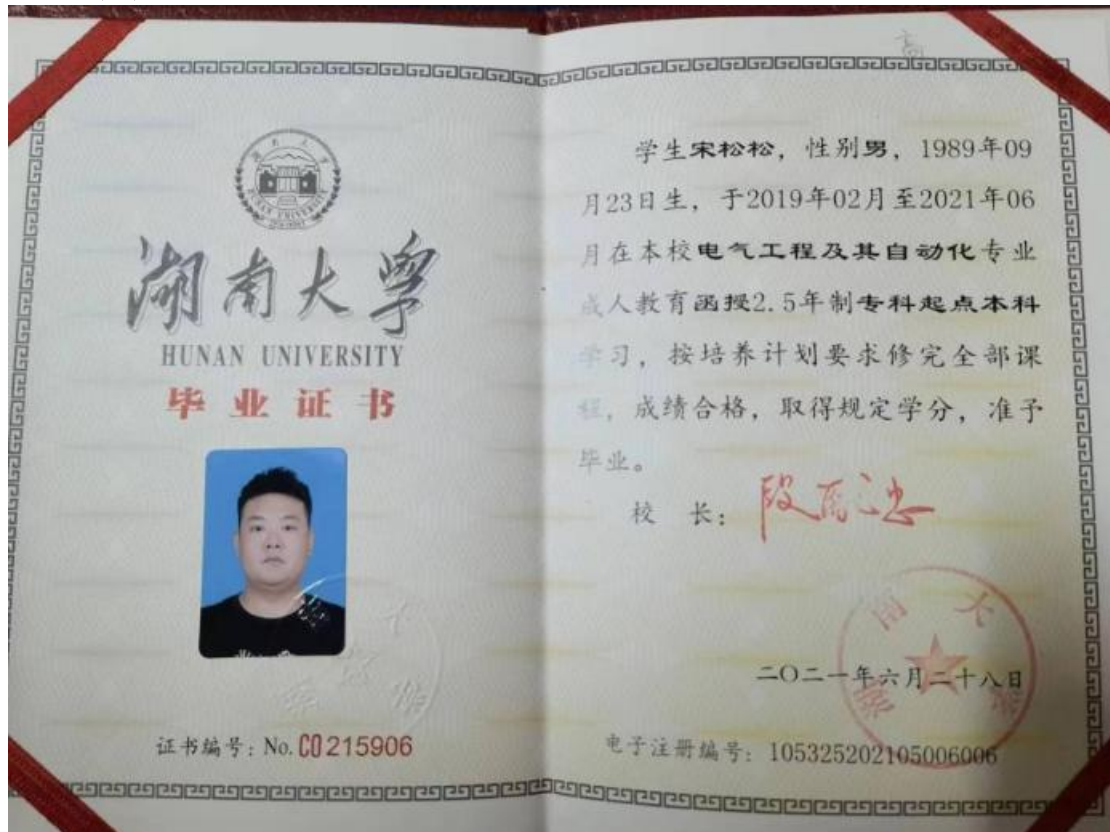 湖南大学
HUNAN UNIVERSITY
湖南大学
HUNAN UNIVERSITY
毕业证书
证书编号：No. C0215906
高
学生宋松松，性别男，1989年09
月23日生，于2019年02月至2021年06
月在本校电气工程及其自动化专业
成人教育函授2.5年制专科起点本科
学习，按培养计划要求修完全部课
程，成绩合格，取得规定学分，准予
毕业。
校 长：
湖南大学
二〇二一年六月二十八日
电子注册编号：105325202105006006